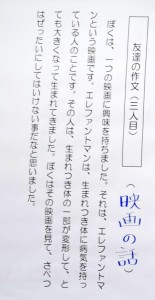 友達の作文（三人目）
（映画の話）
ぼくは、一つの映画に興味を持ちました。それは、エレファントマ
ンという映画です。エレファントマンは、生まれつき体に病気を持っ
ている人のことです。その人は、生まれつき体の一部が変形して、と
ても大きくなって生まれてきました。ぼくはその映画を見て、さべつ
はぜったいにしてはいけない事だなと思いました。